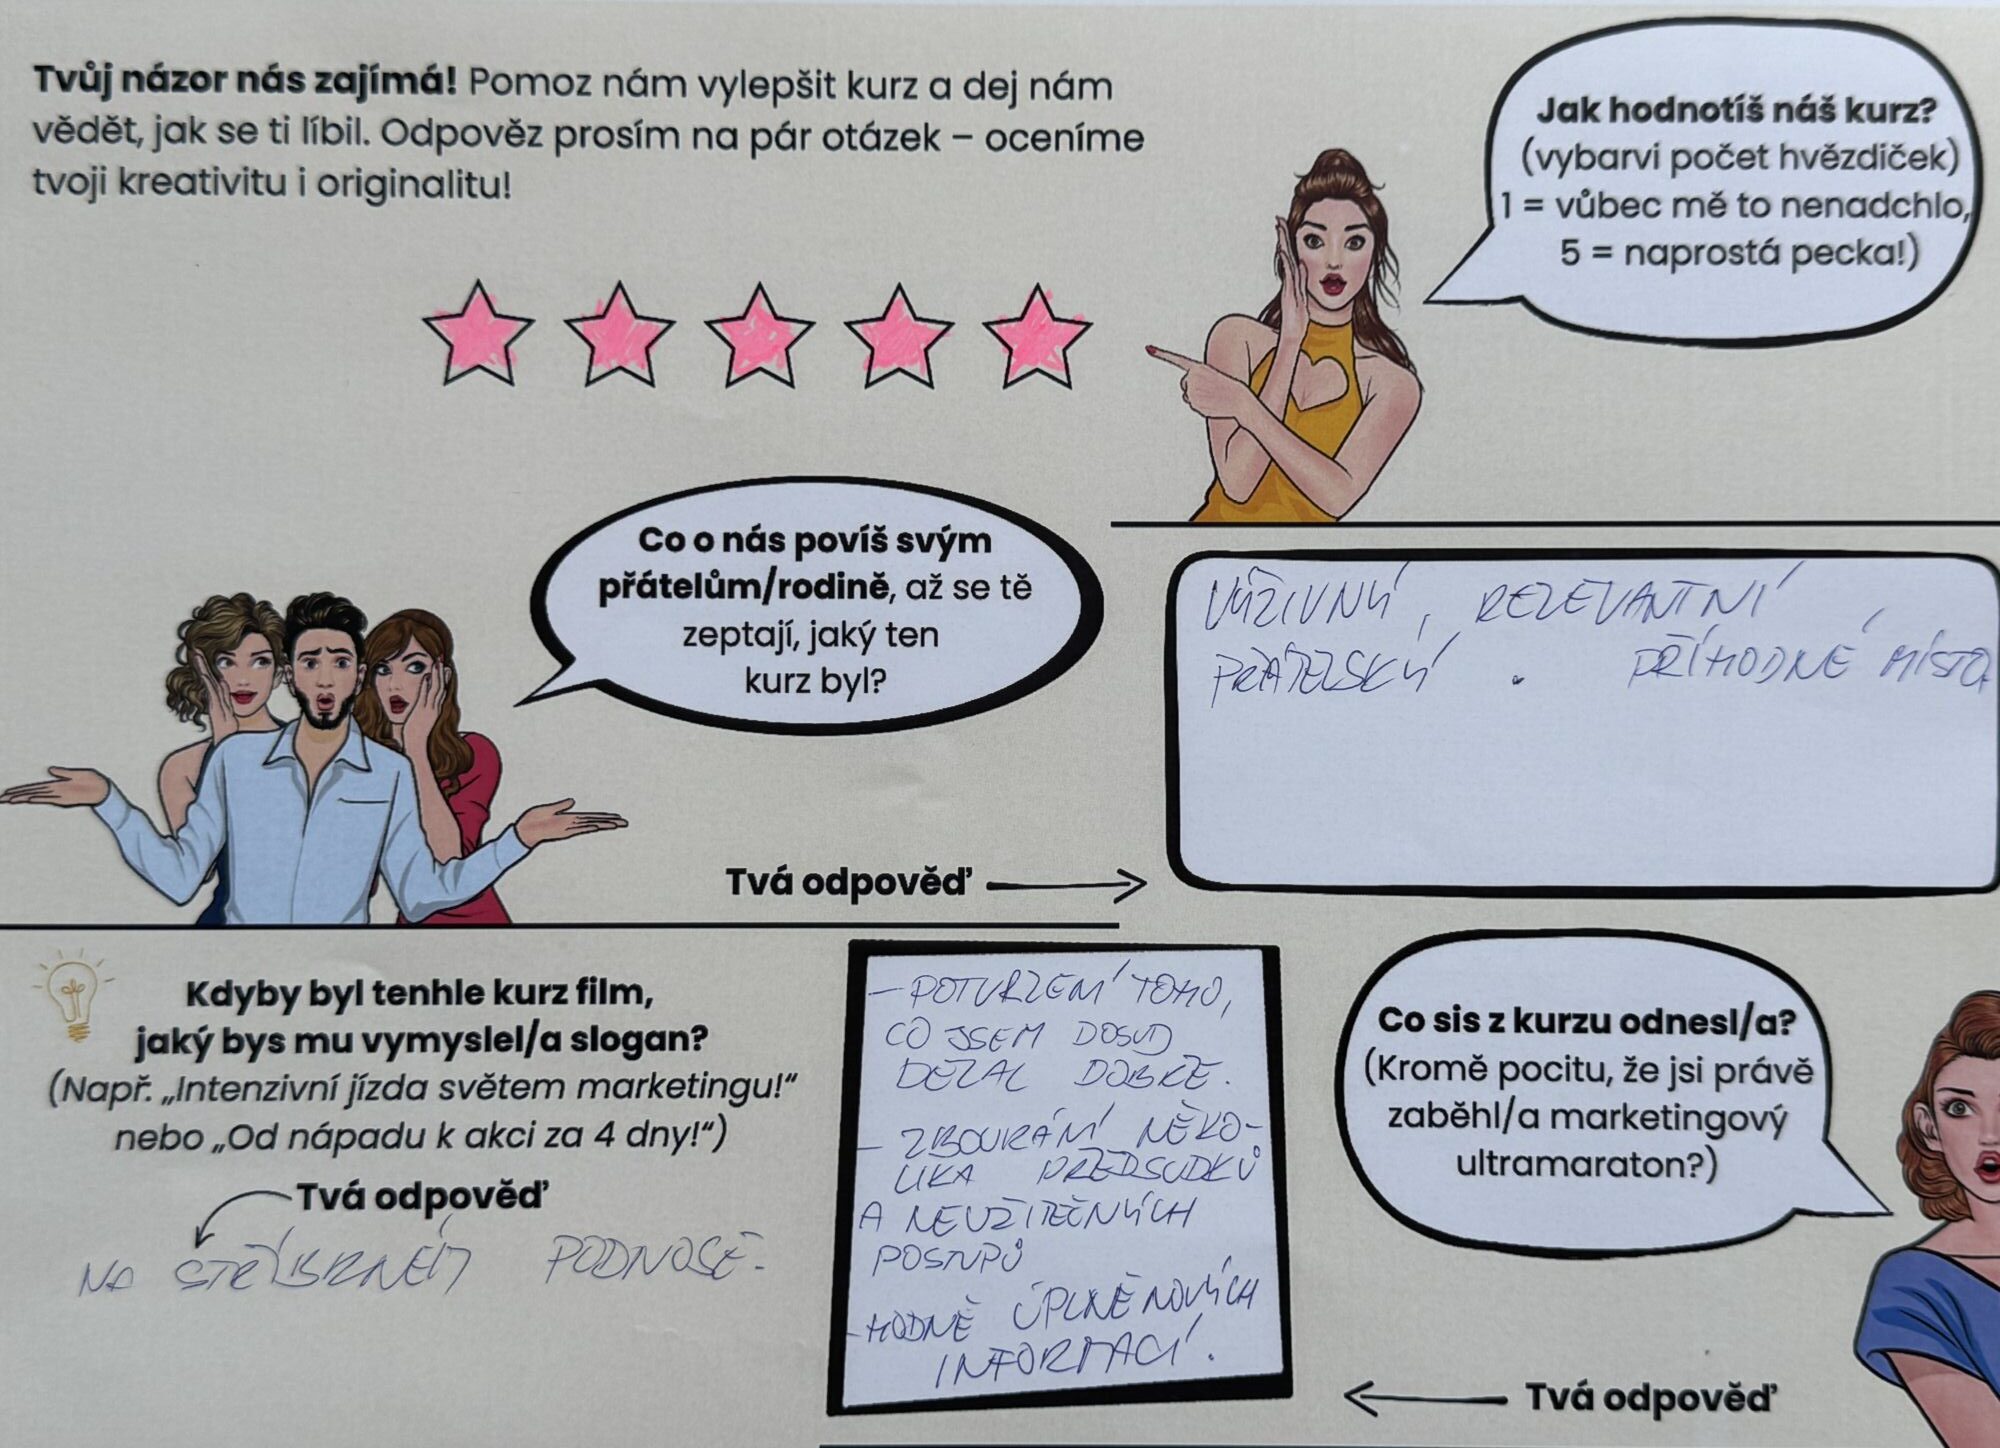 Tvůj názor nás zajímá! Pomoz nám vylepšit kurz a dej nám
vědět, jak se ti líbil. Odpověz prosím na pár otázek – oceníme
tvoji kreativitu i originalitu!
Jak hodnotíš náš kurz?
(vybarvi počet hvězdiček)
1 = vůbec mě to nenadchlo,
5 = naprostá pecka!)
Co o nás povíš svým
přátelům/rodině, až se tě
zeptají, jaký ten
kurz byl?
Tvá odpověď
VÝŽIVNÝ, RELEVANTNÍ,
PŘÁTELSKÝ. PŘÍHODNÉ MÍSTO.
Kdyby byl tenhle kurz film,
jaký bys mu vymyslel/a slogan?
(Např. „Intenzivní jízda světem marketingu!“
nebo „Od nápadu k akci za 4 dny!“)
Tvá odpověď
NA STŘÍBRNÉM PODNOSE.
Co sis z kurzu odnesl/a?
(Kromě pocitu, že jsi právě
zaběhl/a marketingový
ultramaraton?)
Tvá odpověď
– POTVRZENÍ TOHO,
CO JSEM DOSUD
DĚLAL DOBŘE.
– ZBOURÁNÍ NĚKO-
LIKA PŘEDSUDKŮ
A NEUŽITEČNÝCH
POSTUPŮ
– HODNĚ ÚPLNĚ NOVÝCH
INFORMACÍ.